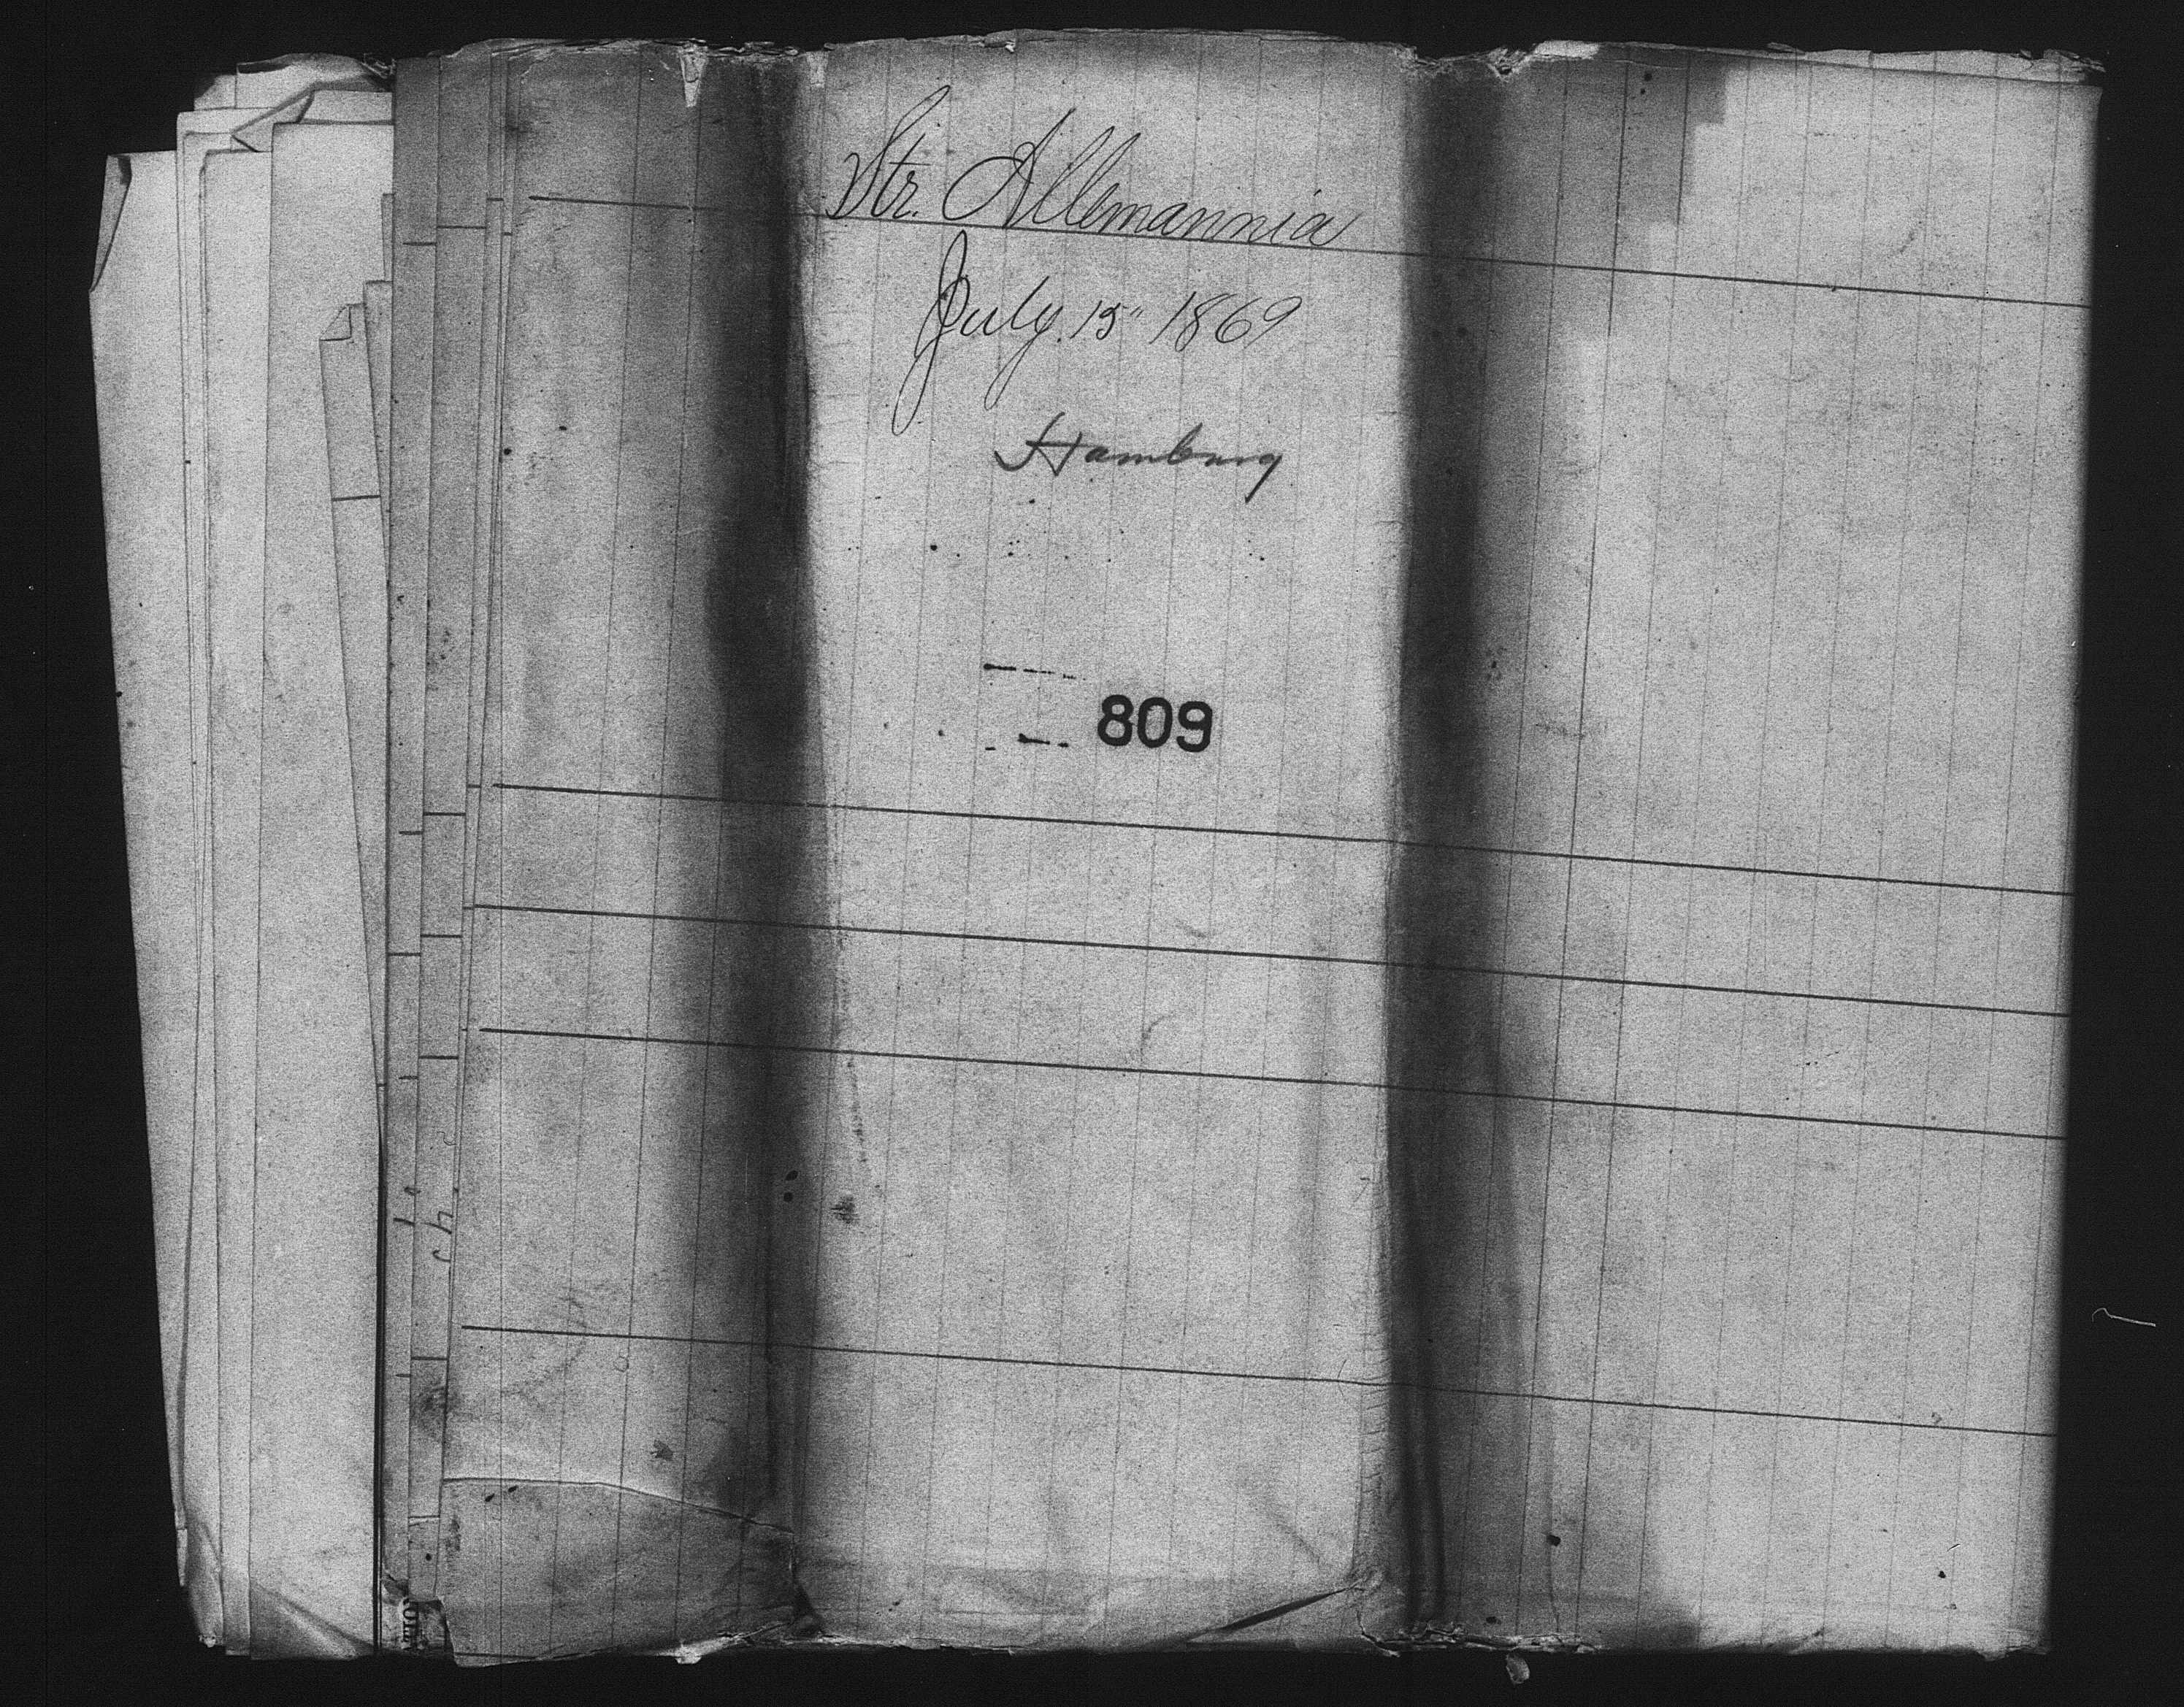 Str. Allemannia
July. 15" 1869
Hamburg
809